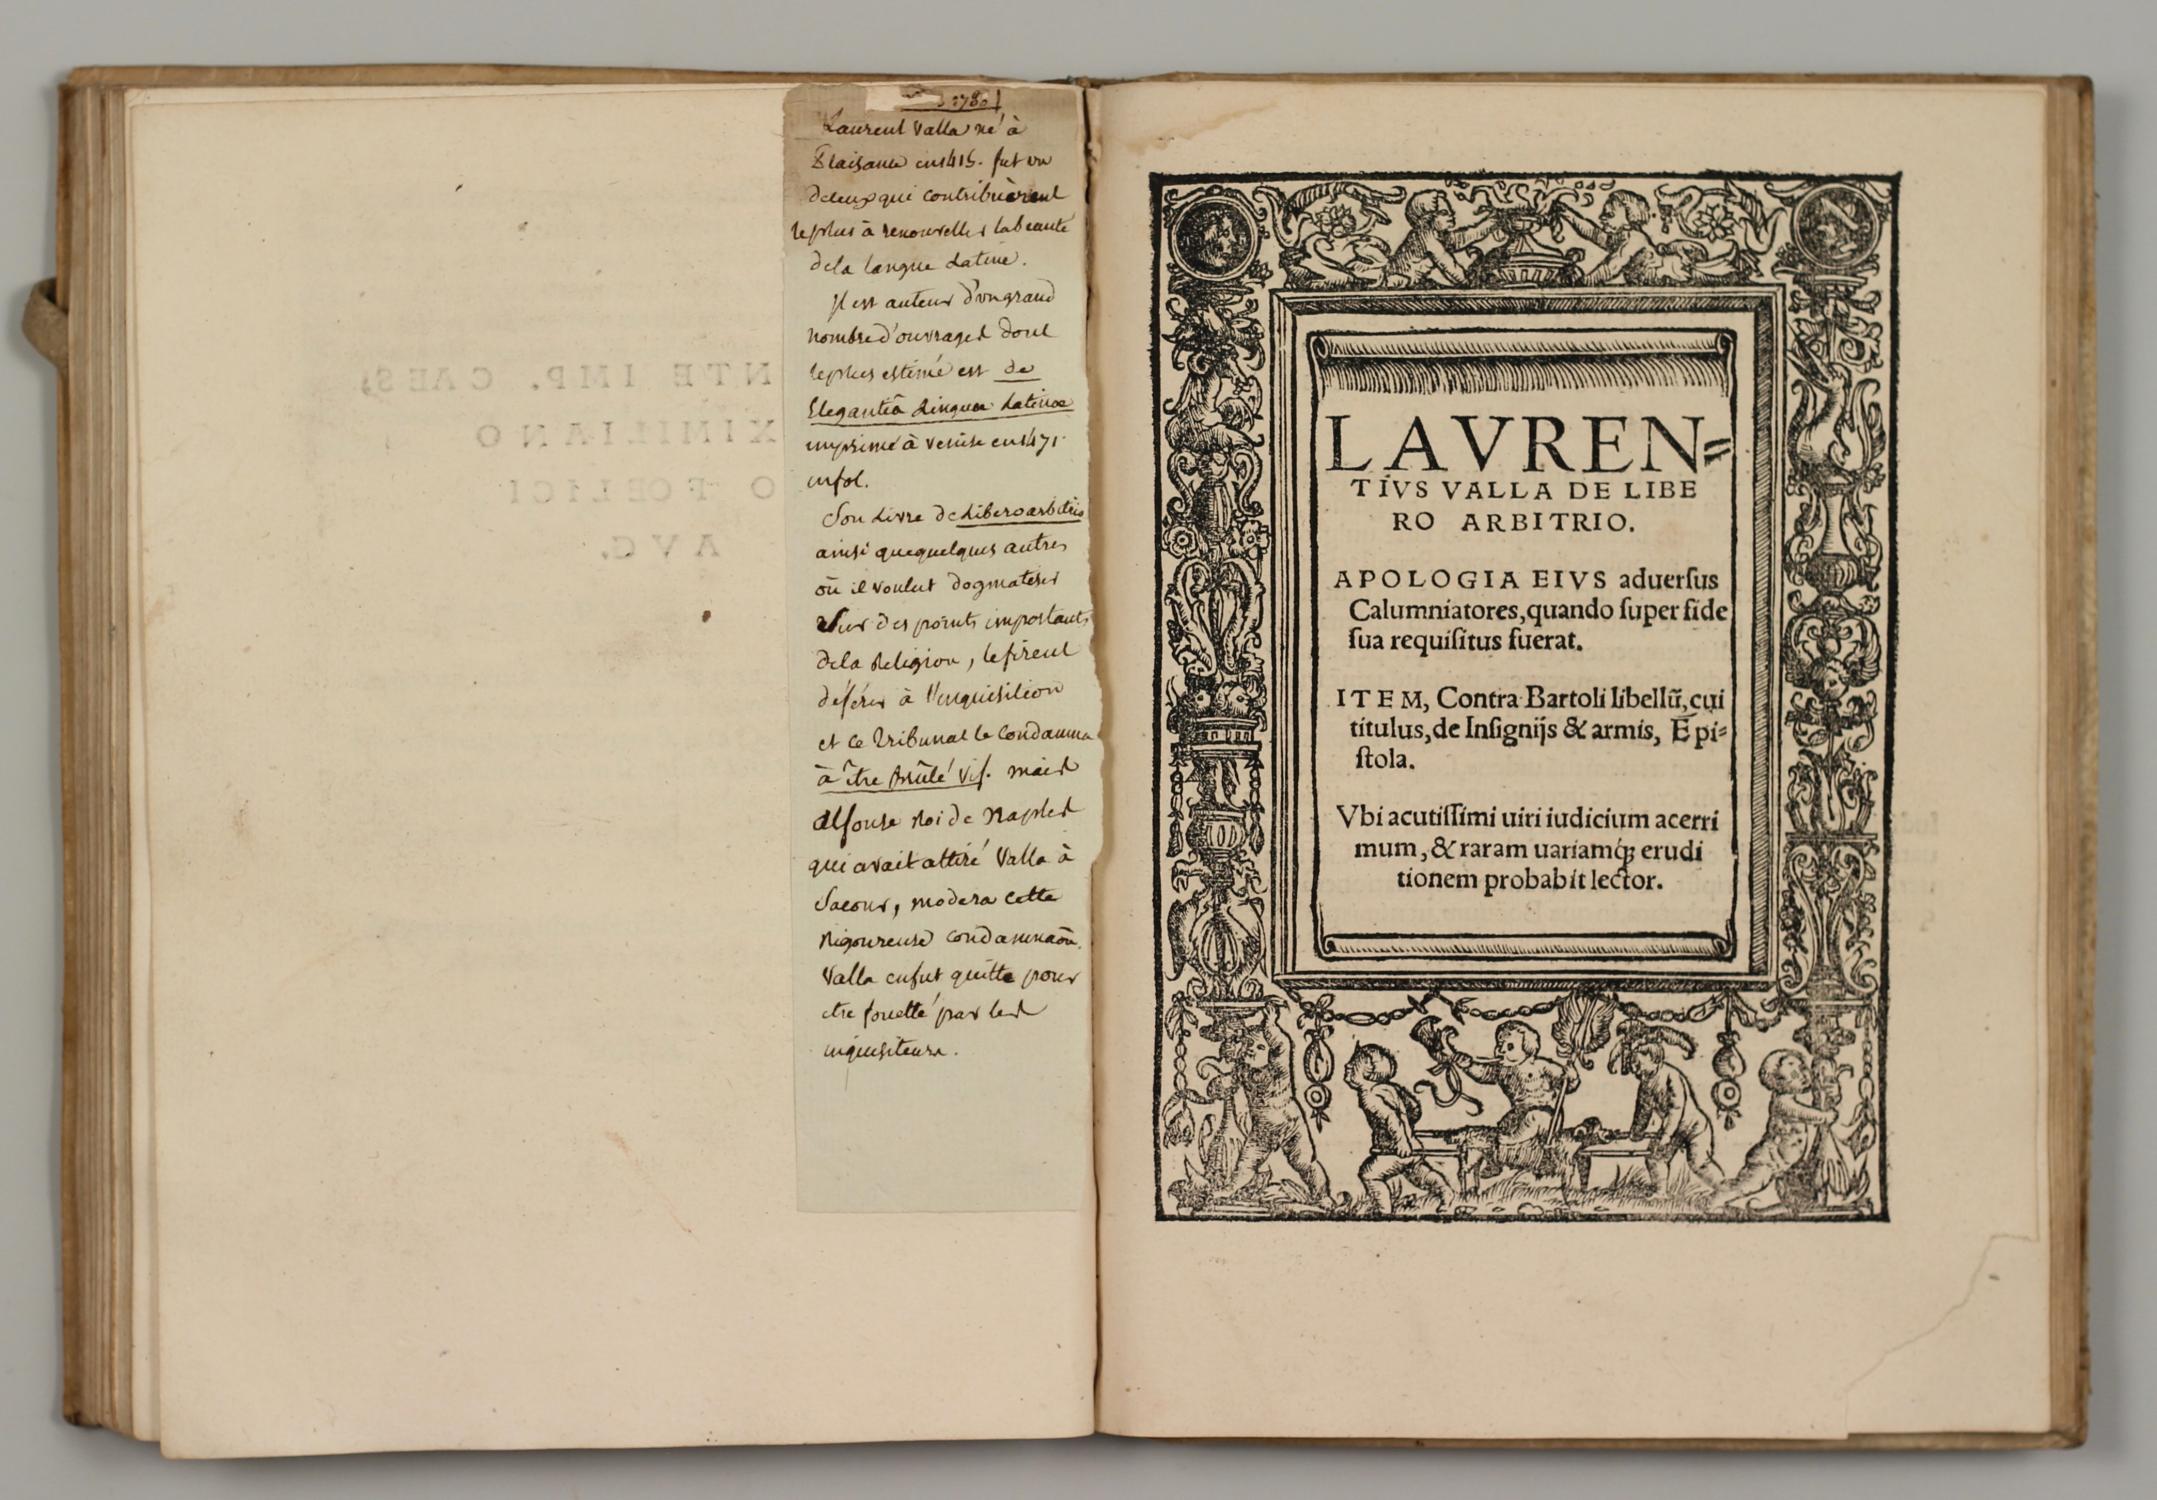 1780
Laurent Valla né à
Plaisance en 1415. fut un
de ceux qui contribuèrent
le plus à renouveller la beauté
de la langue Latine.
Il est auteur d'un grand
nombre d'ouvrages dont
le plus estimé est de
Elegantiâ Linguæ Latinæ
imprimé à Venise en 1471.
infol.
Son Livre de Libero arbitrio
ainsi que quelques autres
où il voulut dogmatiser
sur des points importants
de la Religion, le firent
déférer à l'inquisition
et ce Tribunal le condamna
à être Brûlé vif. mais
Alfonse Roi de Naples
qui avait attiré Valla à
sa cour, modera cette
Rigoureuse condamnaõn.
Valla en fut quitte pour
etre fouetté par les
inquisiteurs.
NTE IMP. CAES,
XIMILIANO
O FOELICI
AVC.
LAVREN=
TIVS VALLA DE LIBE
RO ARBITRIO.
APOLOGIA EIVS aduerſus
Calumniatores, quando ſuper fide
ſua requiſitus fuerat.
ITEM, Contra Bartoli libellũ, cui
titulus, de Inſignijs & armis, Epi=
ſtola.
Vbi acutiſſimi uiri iudicium acerri
mum, & raram uariamq; erudi
tionem probabit lector.